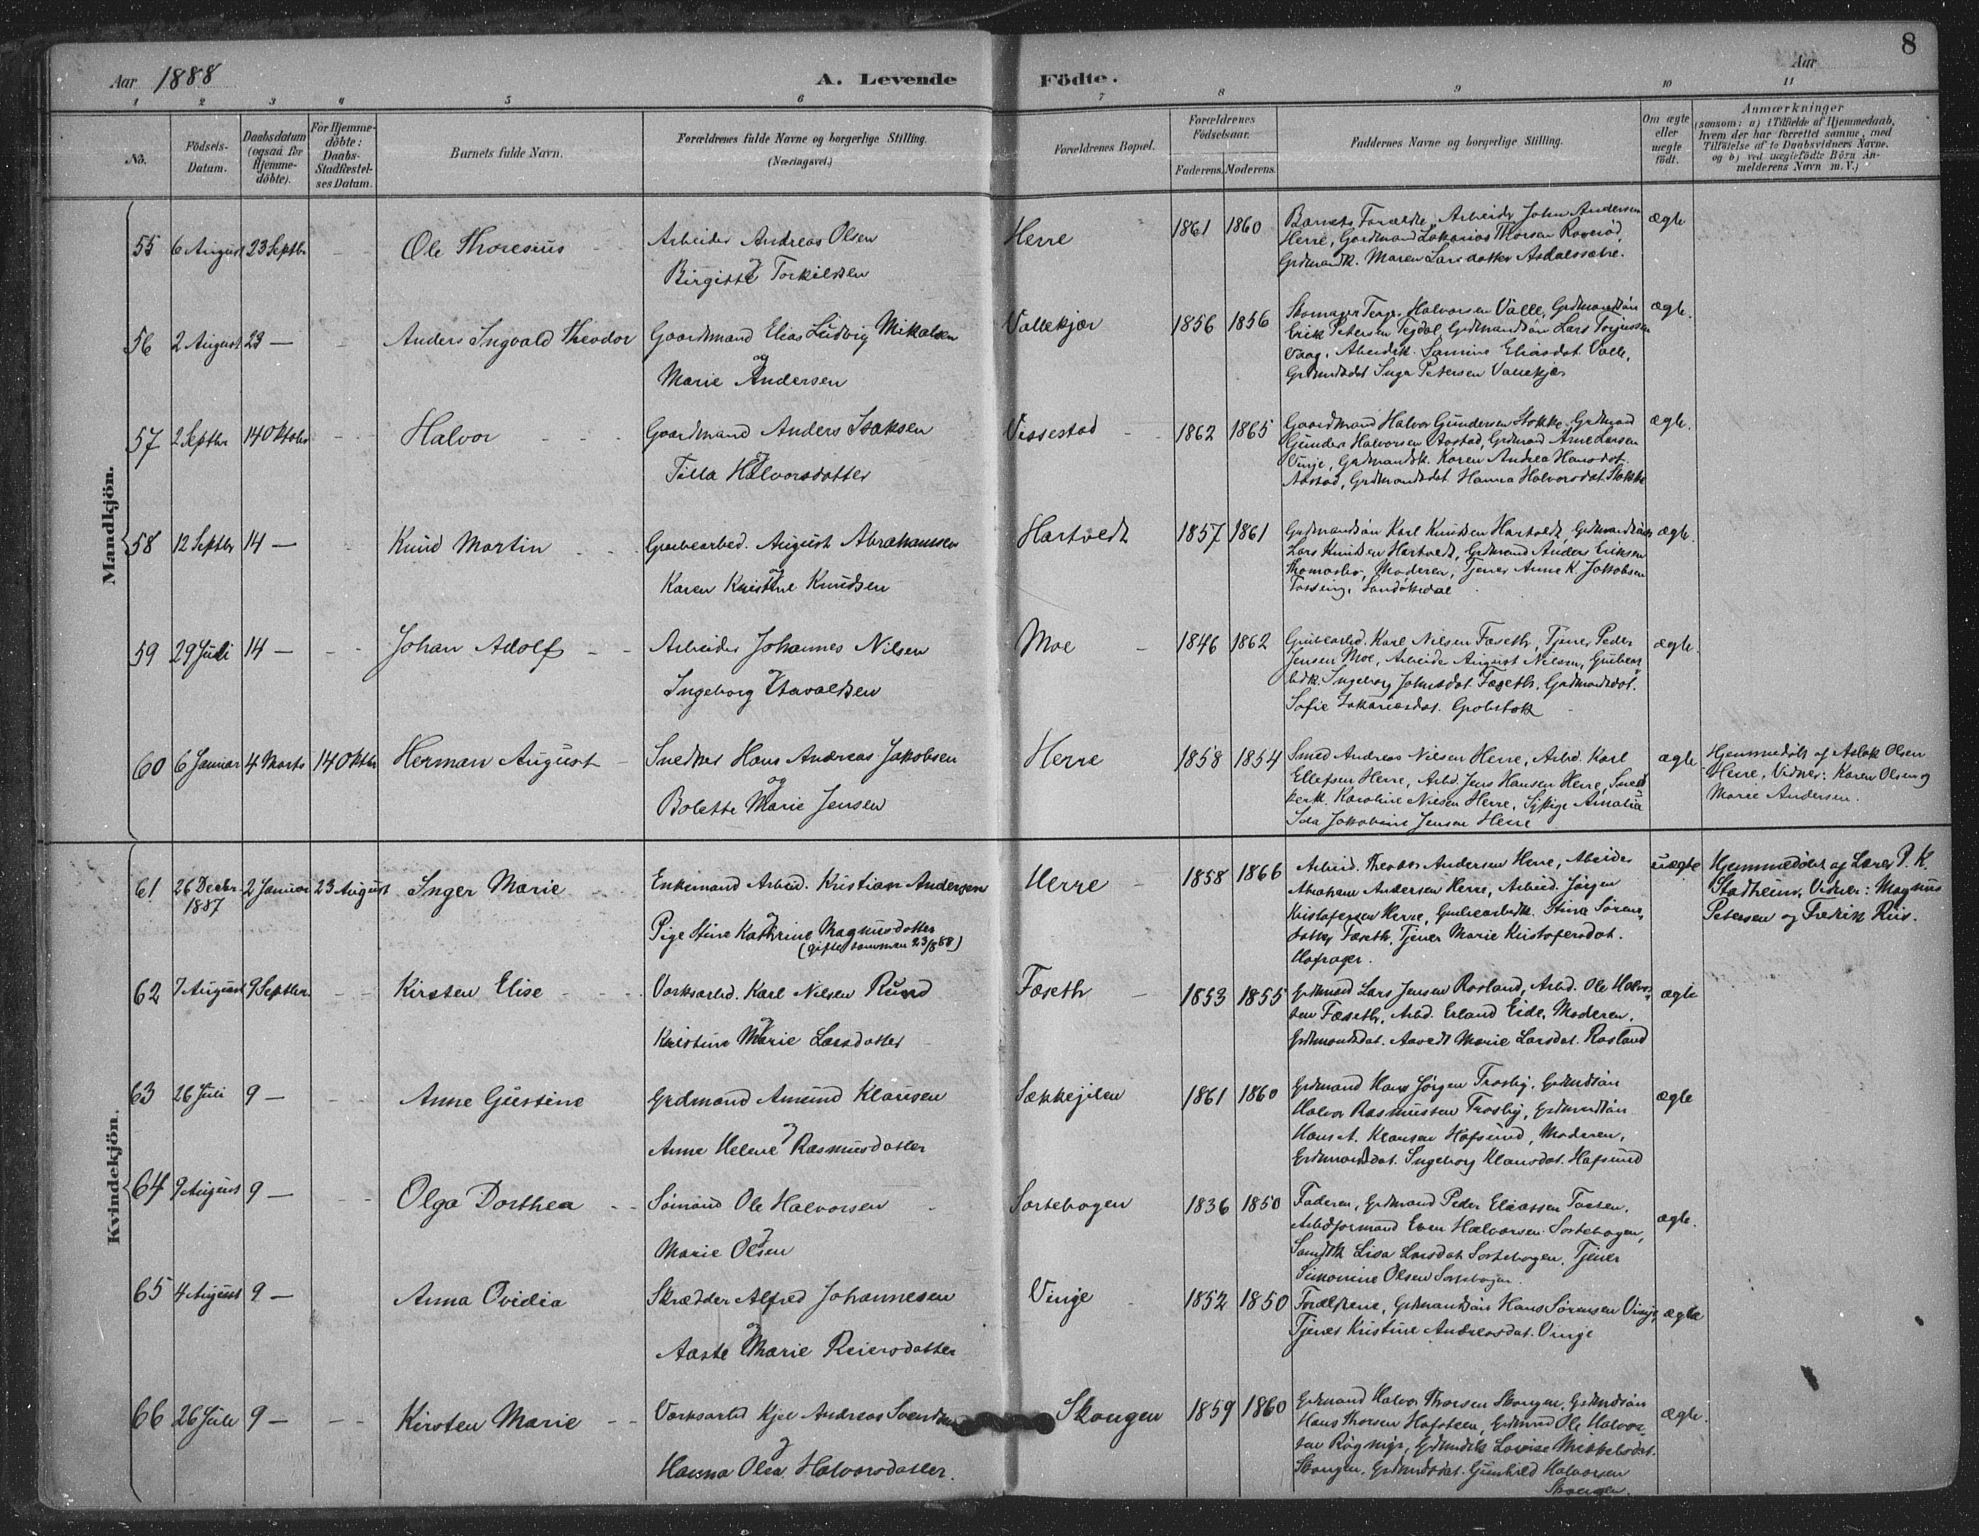 8
Aar 1888 A. Levende Födte. Aar
1 2 3 4 5 6 7 8 9 10 11
No.
Födsels-Datum.
Daabsdatum (ogsaa for Hjemmedöbte).
För Hjemmedöbte: Daabs-Stadfæstelses Datum.
Barnets fulde Navn.
Forældrenes fulde Navne og borgerlige Stilling. (Næringsvei.)
Forældrenes Bopæl.
Forældrenes Födselsaar.
Faderens. Moderens.
Faddernes Navne og borgerlige Stilling.
Om ægte eller uægte födt.
Anmærkninger
(saasom: a) i Tilfælde af Hjemmedaab,
hvem der har forrettet samme, med
Tilföielse af to Daabsvidners Navne,
og b) ved uægtefödte Börn An-
melderens Navn m. V.)
Mandkjön.
55 6 August 23 Septbr Ole Thoresius Arbeider Andreas Olsen
og Birgitte Torkildsen
Herre 1861 1860
Barnets Forældre, Arbeider John Andersen
Herre, Gardmand Zakarias Thorsen
Grdmandk. Maren Larsdatter Asdalssætre.
ægte
56 2 August 23 — Anders Ingvald Theodor Gaardmand Elias Ludvig Mikalsen
og
Marie Andersen
Vallekjær 1856 1856
Skomager Terje Halvorsen Valle, Grdmandsön
Erik Petersen Tegdal, Grdmandsön Lars Torjussen
Vaag, Arbeidsk. Samine Eliasdat. Valle,
Grdmandsdat Inga Petersen Vallekjær
ægte.
57 2 Septbr 14 Oktober Halvor Gaardmand Anders Isaksen
og Tilla Halvorsdatter
Vissestad 1862 1865
Gaardmand Halvor Gundersen Stokke, Grdmand
Gunder Halvorsen Aastad, Grdmand Arne Larsen
Vinje, Grdmandsk. Karen Andrea Hansdat.
Aastad, Grdmandsdat Hanna Halvorsdat. Stokke
ægte.
58 12 Septbr 14 — Knud Martin Grubearbed. August Abrahamsen
og Karen Kristine Knudsen
Hartvedt 1857 1861
Grdmandsön Karl Knudsen Hartvedt, Grdmandsön
Lars Knudsen Hartvedt, Grdmand Anders Eriksen
Thomasbo, Moderen, Tjener Anne K. Jakobsen
Sandökedal
ægte.
59 29 Juli 14 — Johan Adolf Arbeider Johannes Nilsen
og Ingeborg Havaldsen
Moe 1846 1862
Grubearbd. Karl Nilsen Fæseth, Tjener Peder
Jensen Moe, Arbeider August Nilsen, Grubear-
bdk. Ingeborg Johnsdat. Fæseth, Grdmandsdat.
Sofie Zakariasdat. Grobstok
ægte.
60 6 Januar 4 Marts 14 Oktbr Herman August Snedker Hans Andreas Jakobsen
og
Bolette Marie Jensen
Herre 1858 1854
Smed Andreas Nilsen Herre, Arbd. Karl
Ellefsen Herre, Arbd. Jens Hansen Herre, Sned-
kerk. Karoline Nilsen Herre, Pige Amalia
Ida Jakobine Jensen Herre
ægte
Hjemmedöbt af Aslak Olsen
Herre, Vidner: Karen Olsen og
Marie Andersen.
Kvindekjön.
61 26 Decbr 1887 2 Januar 23 August Inger Marie Enkemand Arbed. Kristian Andersen
og Pige Stine Kathrine Magnusdatter
(gifte sammen 23/8 88)
Herre 1858 1866
Arbeid. Andersen Herre, Arbeider
Abraham Andersen Herre, Arbeid. Jörgen
Kristofersen Herre, Grubearbdk. Stina Sörens-
datter Fæseth, Tjener Marie Kristofersdat.
uægte
Hjemmedöbt af Lærer P. K.
Stadheim, Vidner: Magnus
Petersen og Fredrik Riis.
62 7 August 9 Septbr. Kirsten Elise Værksarbd. Karl Nilsen Rund
og Kristine Marie Larsdatter
Fæseth 1853 1855
Grdmand Lars Jensen Rosland, Arbd. Ole Halvor-
sen Fæseth, Arbd. Erland Eide, Moderen,
Grdmandsdat. Marie Larsdat. Rosland
ægte
63 26 Juli 9 — Anne Gustine Grdmand Amund Klausen
og Anne Helene Rasmusdatter
Sækkejilen 1861 1860
Grdmand Hans Jörgen Trosby, Grdmandsön
Halvor Rasmussen Trosby, Grdmandsön
Hans A. Klausen Hafsund, Moderen,
Grdmandsdat. Ingeborg Klausdat. Hafsund
ægte
64 9 August 9 — Olga Dorthea Sömand Ole Halvorsen
og Marie Olsen
Sortebogen 1836 1850
Faderen, Grdmand Peder Eliassen Tosten,
Arbdformand Even Halvorsen Sortebogen,
Lisa Larsdat Sortebogen, Tjener
Simonine Olsen Sortebogen
ægte.
65 4 August 9 — Anna Ovidia Skrædder Alfred Johannesen
og
Aaste Marie Reiersdatter
Vinje 1852 1850
Forældrene, Grdmandsön Hans Sörensen Vinje,
Tjener Kristine Andreasdat. Vinje
ægte
66 26 Juli 9 — Kirsten Marie Værksarbd Kjel Andreas Svendsen
og Hanna Olea Halvorsdatter.
Skougen 1859 1860
Grdmand Halvor Thorsen Skougen, Grdmandsön
Hans Thorsen Hafsteen, Grdmand Ole Halvor-
sen Rögnige, Grdmandsk Lovise Mikkelsdat.
Skougen, Grdmandsdat. Gunhild Halvorsen
Skougen.
ægte.